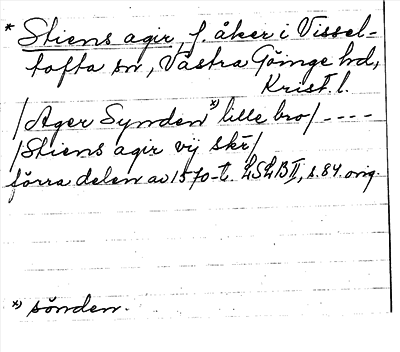 * Stiens agir, f. åker i Vissel-
tofta sn, Västra Göinge hd,
Krist. l.
/Ager Synden *) lille bro/ ----
/Stiens agir vij skr/
förra delen av 1570-t. LSLB II, s. 84. orig.
*) sönden.